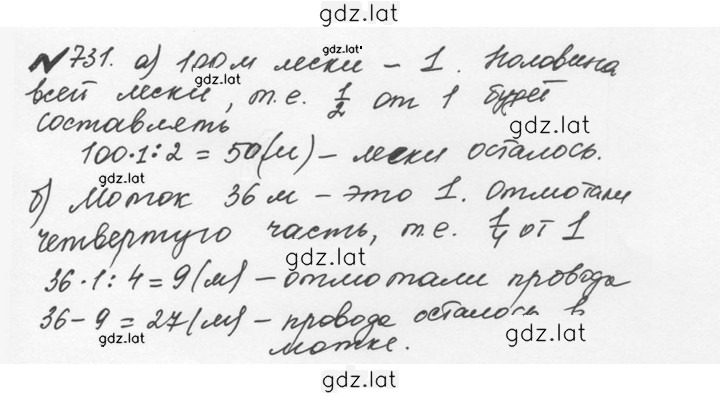 gdz.lat
№731. а) 100 м лески – 1. Половина
gdz.lat
всей лески, т.е. 1/2 от 1 будет
составлять
gdz.lat
100·1:2 = 50(м) – лески осталось.
gdz.lat
б) Моток 36 м – это 1. Отмотали
четвертую часть, т.е. 1/4 от 1
gdz.lat
36·1:4 = 9(м) – отмотали провода
36-9 = 27(м) – провода осталось в
gdz.lat gdz.lat
мотке.
gdz.lat